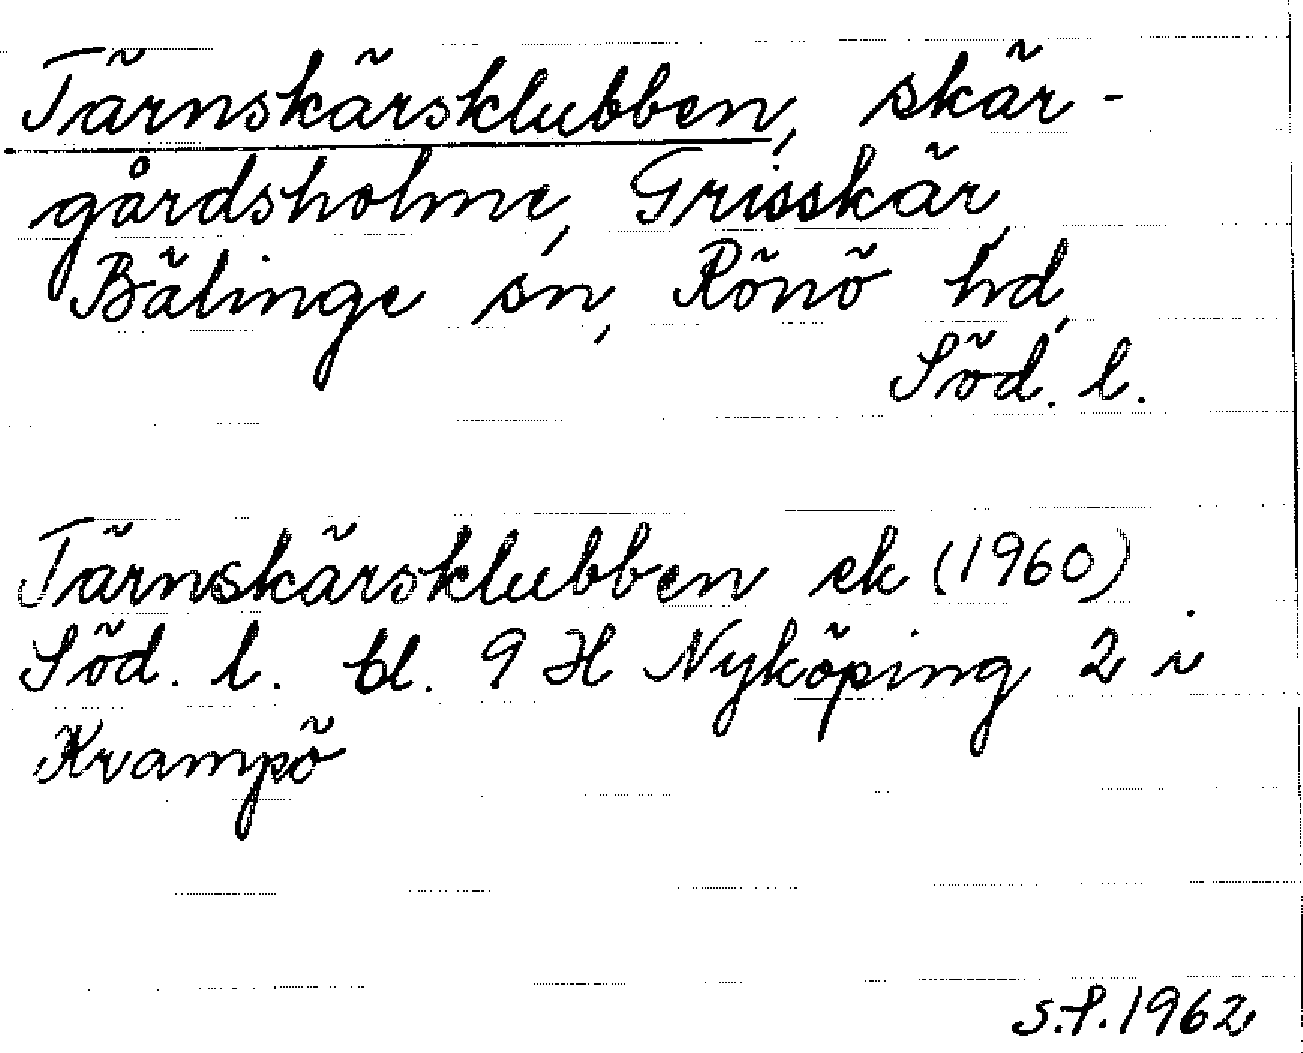 Tärnskärsklubben, skär-
gårdsholme, Grisskär,
Bälinge sn, Rönö hd,
Söd. l.
Tärnskärsklubben ek (1960)
Söd. l. bl. 9 H Nyköping 2 i
Krampö
S.F. 1962